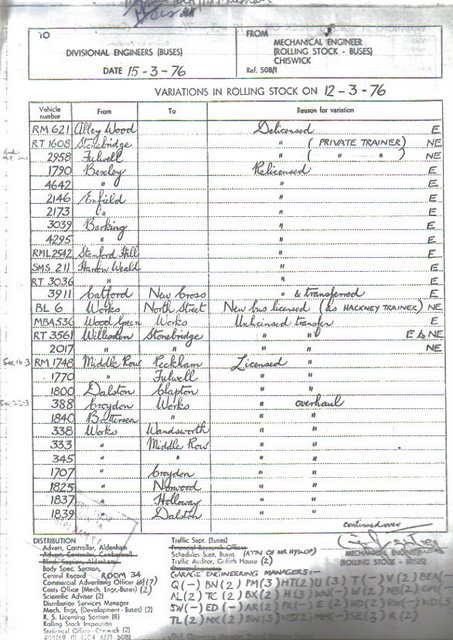 TO
DIVISIONAL ENGINEERS (BUSES)
DATE 15-3-76
FROM
MECHANICAL ENGINEER
(ROLLING STOCK - BUSES)
CHISWICK
Ref. 508/1
VARIATIONS IN ROLLING STOCK ON 12-3-76
Vehicle number From To Reason for variation
RM 621 Alley Wood Delicensed E
RT 1608 Stonebridge " (PRIVATE TRAINER) NE
2958 Fulwell " ( " — " ) NE
1790 Bexley Relicensed E
4642 " " E
2146 Enfield " E
2173 " " E
3039 Barking " E
4295 " " E
RML 2542 Stamford Hill " E
SMS 211 Harrow Weald " E
RT 3036 " " E
3911 Catford New Cross " & transferred E
BL 6 Works North Street New bus licensed (as HACKNEY TRAINER) NE
MBA 536 Wood Green Works Unlicensed transfer E
RT 3561 Willesden Stonebridge " " E to NE
2017 " " " " NE
RM 1748 Middle Row Peckham Licensed "
1770 " Fulwell " "
1800 Dalston Clapton " "
388 Croydon Works " overhaul
1840 Battersea " " "
338 Works Wandsworth " "
333 " Middle Row " "
345 " " " "
1707 " Croydon " "
1825 " Norwood " "
1837 " Holloway " "
1839 " Dalston " "
continued over
DISTRIBUTION
Adven. Controller, Aldenham
Body Spec. Section,
Central Record ROOM 34
Commercial Advertising Officer (7)
Costs Office (Mech. Engr.-Buses) (2)
Scientific Adviser (2)
Distribution Services Manager
Mech. Engr. (Development - Buses) (2)
R. S. Licensing Section (8)
Rolling Stock Inspectors
Statistical Office - Chiswick (2)
Traffic Supt. (Buses)
Financial Research Officer
Schedules Supt. Buses (ATTN OF MR HYSLOP)
Traffic Auditor, Griffith House (2)
GARAGE ENGINEERING MANAGERS:-
MECHANICAL ENGINEER
(ROLLING STOCK - BUSES)